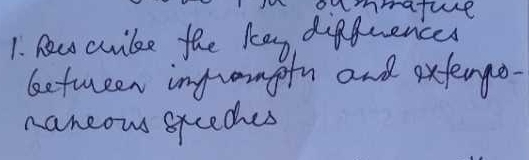 summative
1. Describe the key differences
between impromptu and extempo-
raneous speeches